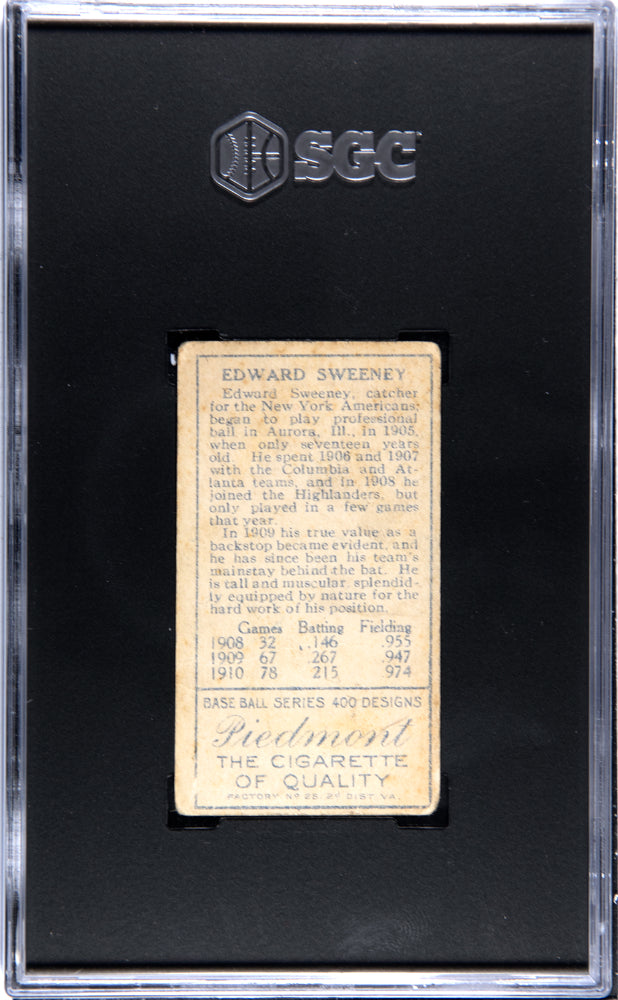 SGC
EDWARD SWEENEY
Edward Sweeney, catcher
for the New York Americans;
began to play professional
ball in Aurora, Ill., in 1905,
when only seventeen years
old. He spent 1906 and 1907
with the Columbia and At-
lanta teams, and in 1908 he
joined the Highlanders, but
only played in a few games
that year.
In 1909 his true value as a
backstop became evident, and
he has since been his team's
mainstay behind the bat. He
is tall and muscular, splendid-
ly equipped by nature for the
hard work of his position.
Games Batting Fielding
1908 32 .146 .955
1909 67 .267 .947
1910 78 .215 .974
BASE BALL SERIES 400 DESIGNS
Piedmont
THE CIGARETTE
OF QUALITY
FACTORY Nº 25, 2ᴰ DIST. VA.